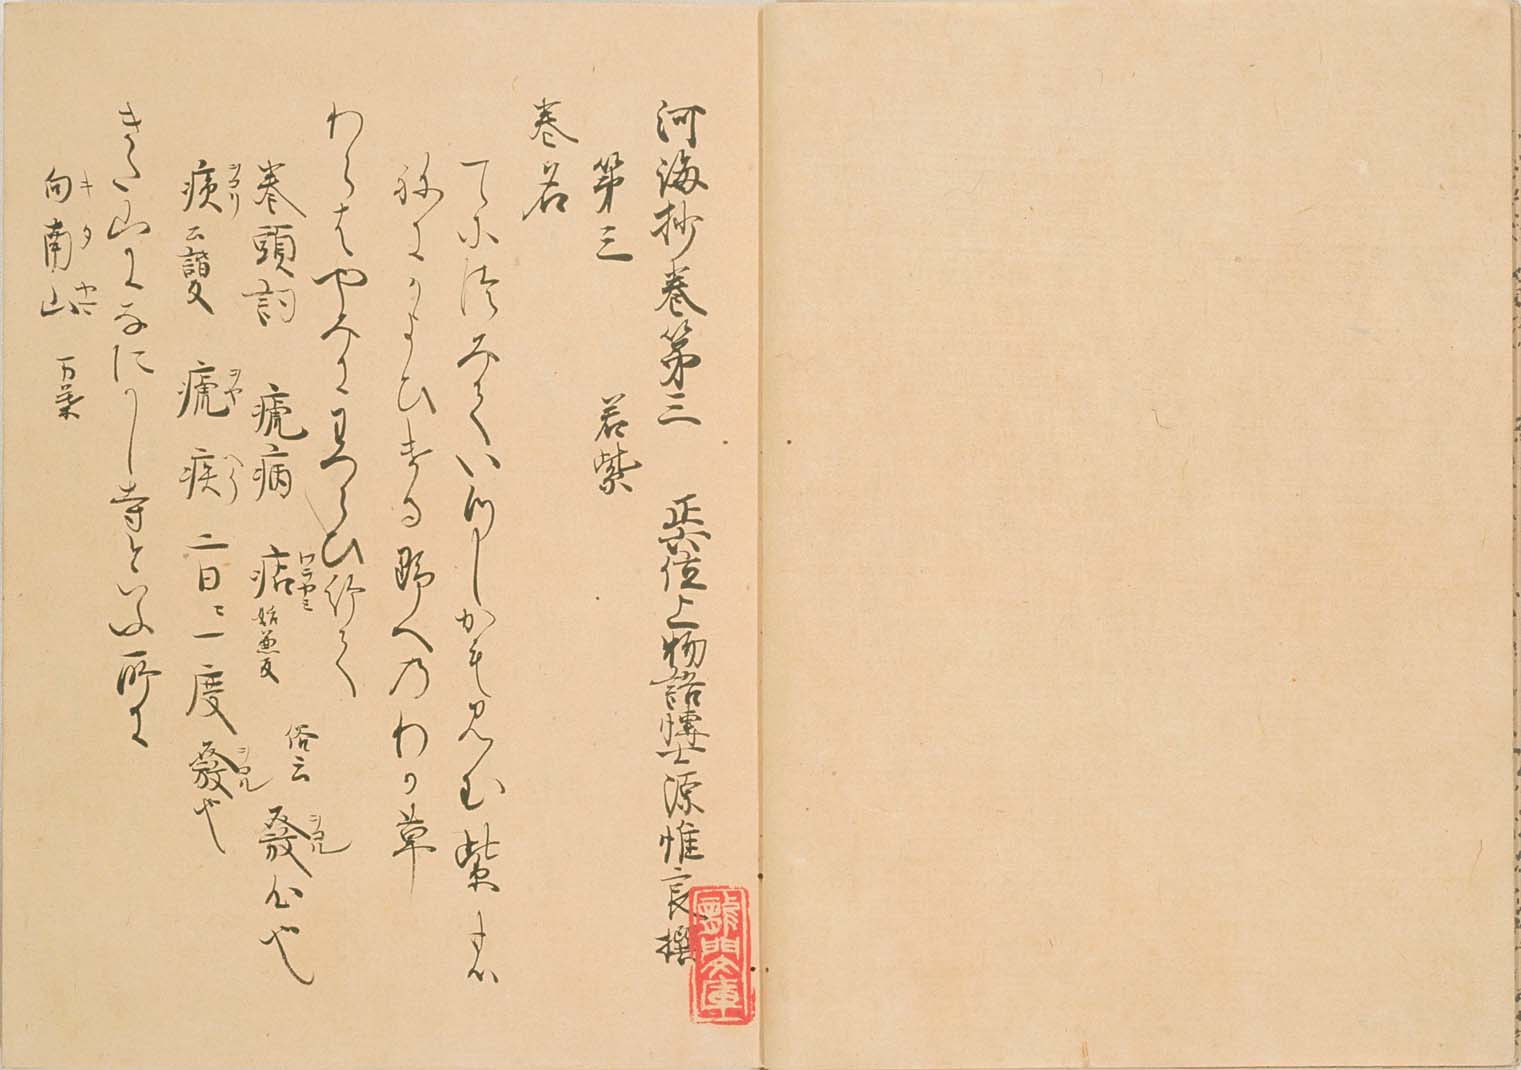 河海抄巻第三　正六位上物語博士源惟良撰
第三　若紫
巻名
てにつみていつしかも見む紫のね
ねにかよひける野への わか草
わらはやみにわつらひ給て
巻頭詞　瘧病　痁ワラハヤミ　俗云　發ヲコル心也
痎ヲコリ　瘧ヤ疾 二日ニ一度發ヲコル也
きた山になにかし寺といふ所に
向南山キタヤマ　万葉
龍門文庫